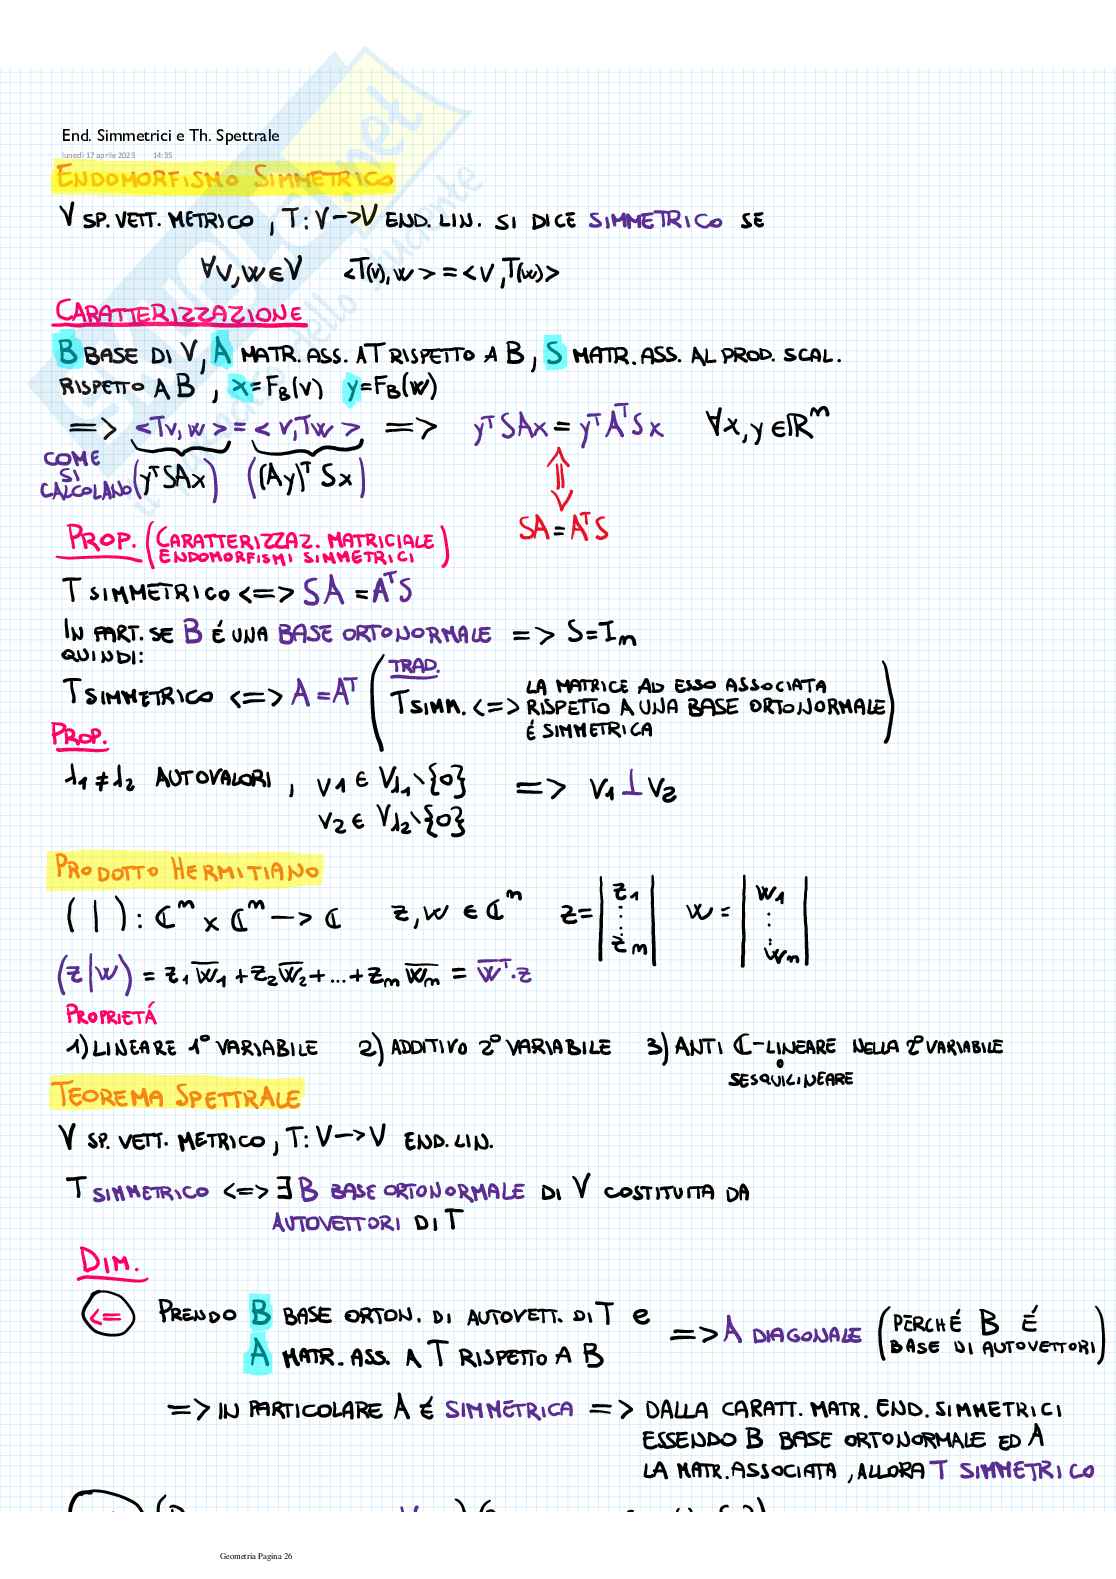 End. Simmetrici e Th. Spettrale
lunedì 17 aprile 2023 14:35
ENDOMORFISMO SIMMETRICO
V SP. VETT. METRICO, T: V->V END. LIN. SI DICE SIMMETRICO SE
∀v,w∈V <T(v),w> = <v,T(w)>
CARATTERIZZAZIONE
B BASE DI V, A MATR. ASS. A T RISPETTO A B, S MATR. ASS. AL PROD. SCAL.
RISPETTO A B, x=F_B(v) y=F_B(w)
=> <Tv,w> = <v,Tw> => yᵀSAx = yᵀAᵀSx ∀x,y∈ℝᵐ
COME SI CALCOLANO (yᵀSAx) ((Ay)ᵀSx)
SA = AᵀS
PROP. (CARATTERIZZAZ. MATRICIALE ENDOMORFISMI SIMMETRICI)
T SIMMETRICO <=> SA = AᵀS
IN PART. SE B É UNA BASE ORTONORMALE => S=Iₘ
QUINDI:
T SIMMETRICO <=> A = Aᵀ
(TRAD.
T SIMM. <=> LA MATRICE AD ESSO ASSOCIATA
RISPETTO A UNA BASE ORTONORMALE
É SIMMETRICA)
PROP.
λ₁ ≠ λ₂ AUTOVALORI, v₁ ∈ V_λ₁∖{0} => v₁ ⊥ v₂
v₂ ∈ V_λ₂∖{0}
PRODOTTO HERMITIANO
( | ): ℂᵐ x ℂᵐ -> ℂ z,w ∈ ℂᵐ z= |z₁ ⋮ zₘ| w= |w₁ ⋮ wₘ|
(z|w) = z₁w̅₁ + z₂w̅₂ + ... + zₘw̅ₘ = w̅ᵀ·z
PROPRIETÁ
1) LINEARE 1° VARIABILE 2) ADDITIVO 2° VARIABILE 3) ANTI ℂ-LINEARE NELLA 2° VARIABILE
O
SESQUILINEARE
TEOREMA SPETTRALE
V SP. VETT. METRICO, T: V->V END. LIN.
T SIMMETRICO <=> ∃ B BASE ORTONORMALE DI V COSTITUITA DA
AUTOVETTORI DI T
DIM.
<= PRENDO B BASE ORTON. DI AUTOVETT. DI T e
A MATR. ASS. A T RISPETTO A B
=> A DIAGONALE (PERCHÉ B É BASE DI AUTOVETTORI)
=> IN PARTICOLARE A É SIMMETRICA => DALLA CARATT. MATR. END. SIMMETRICI
ESSENDO B BASE ORTONORMALE ED A
LA MATR. ASSOCIATA, ALLORA T SIMMETRICO
Geometria Pagina 26